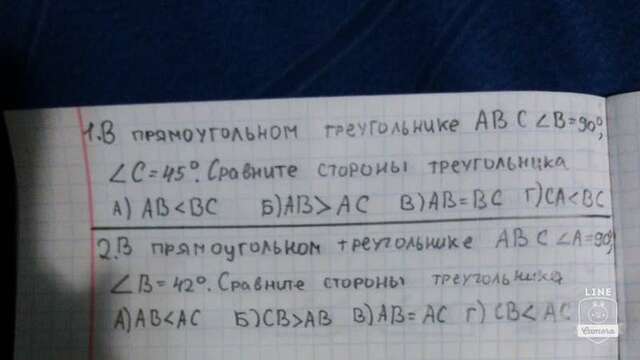 1. В прямоугольном треугольнике АВС ∠В=90°,
∠С=45°. Сравните стороны треугольника
А) АВ<ВС Б) АВ>АС В) АВ=ВС Г) СА<ВС
2. В прямоугольном треугольнике АВС ∠А=90°,
∠В=42°. Сравните стороны треугольника
А) АВ<АС Б) СВ>АВ В) АВ=АС Г) СВ<АС
LINE
Camera